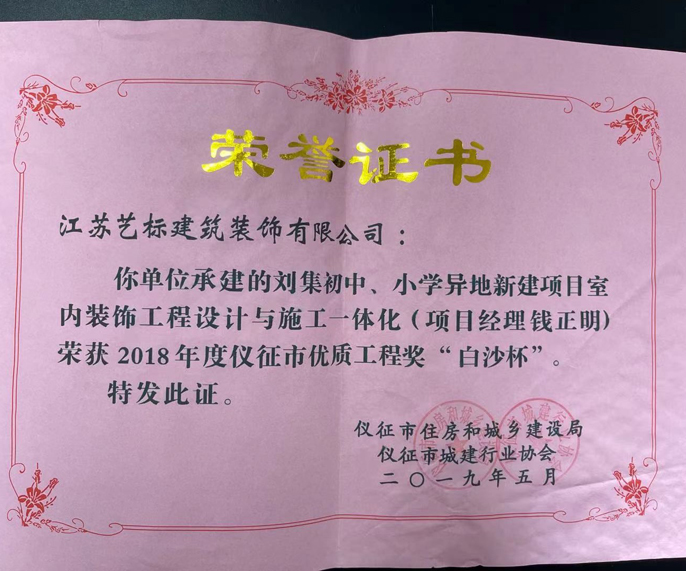 荣誉证书
江苏艺标建筑装饰有限公司：
你单位承建的刘集初中、小学异地新建项目室
内装饰工程设计与施工一体化（项目经理钱正明)
荣获 2018 年度仪征市优质工程奖“白沙杯”。
特发此证。
仪征市住房和城乡建设局
仪征市城建行业协会
二〇一九年五月